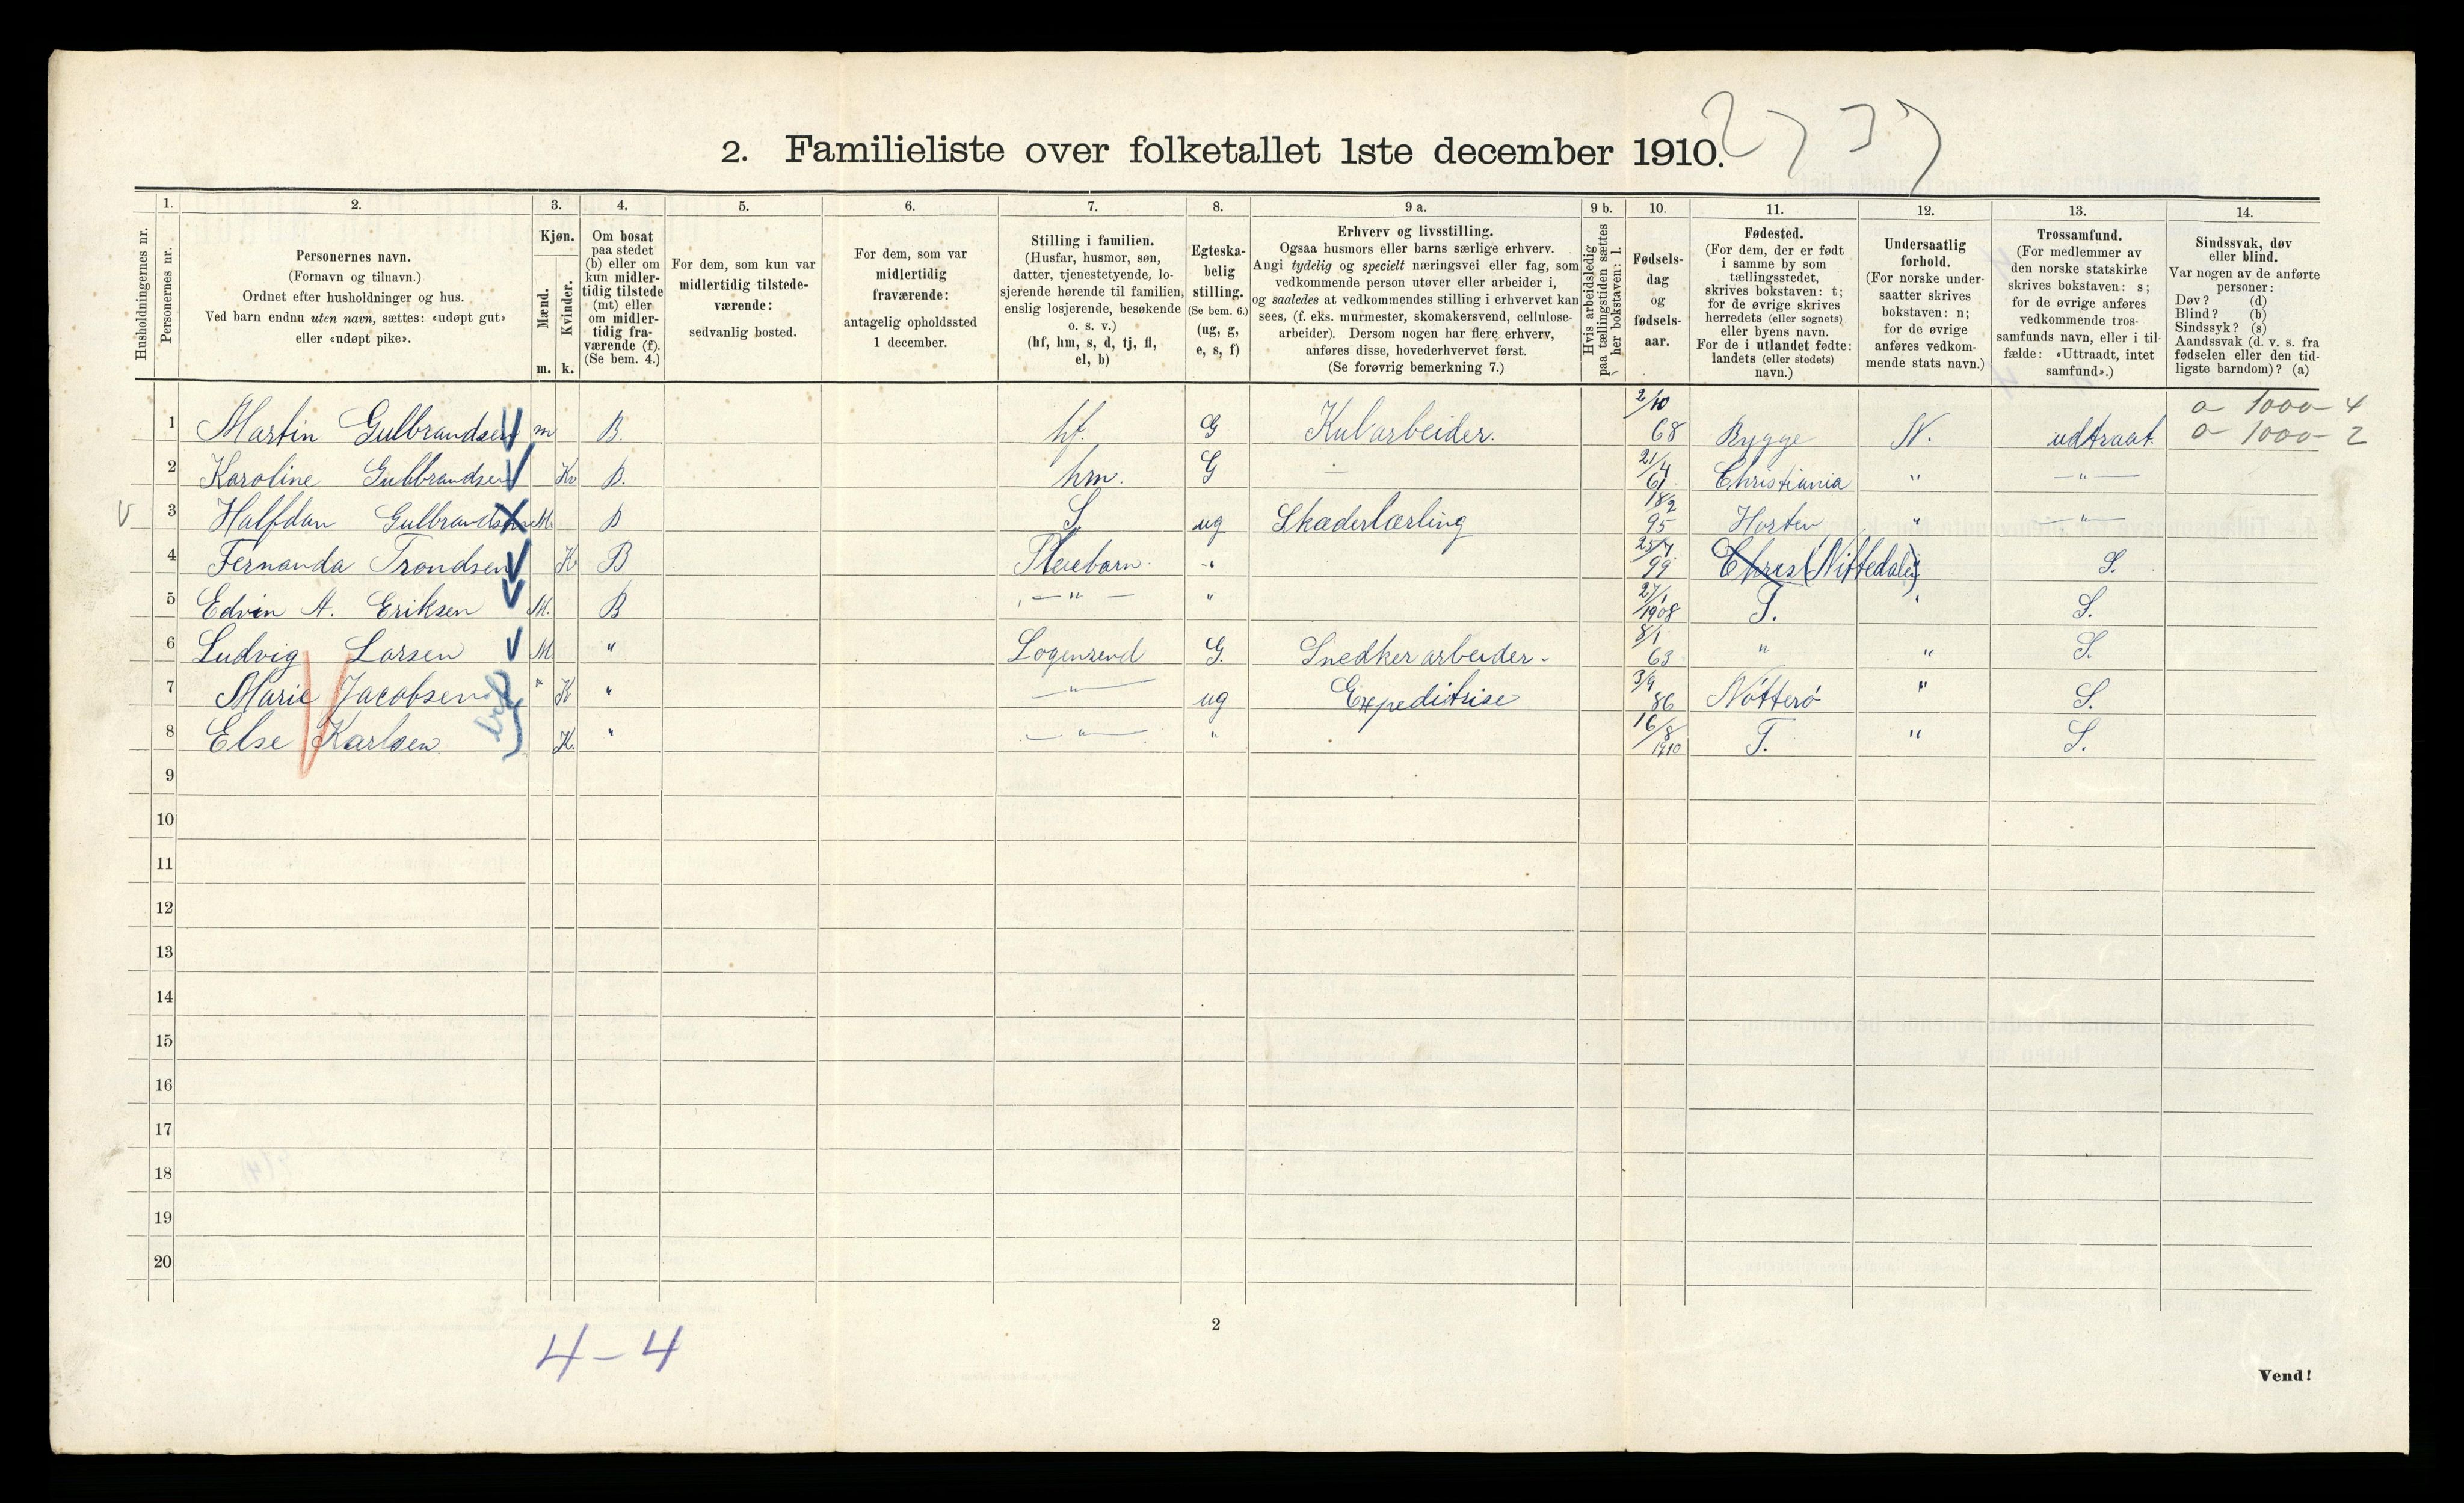 2737
2. Familieliste over folketallet 1ste december 1910.
Husholdningernes nr.
1. Personernes nr.
2. Personernes navn.
(Fornavn og tilnavn.)
Ordnet efter husholdninger og hus.
Ved barn endnu uten navn, sættes: «udøpt gut»
eller «udøpt pike».
3. Kjøn.
Mænd. m.
Kvinder. k.
4. Om bosat
paa stedet
(b) eller om
kun midler-
tidig tilstede
(mt) eller
om midler-
tidig fra-
værende (f).
(Se bem. 4.)
5. For dem, som kun var
midlertidig tilstede-
værende:
sedvanlig bosted.
6. For dem, som var
midlertidig
fraværende:
antagelig opholdssted
1 december.
7. Stilling i familien.
(Husfar, husmor, søn,
datter, tjenestetyende, lo-
sjerende hørende til familien,
enslig losjerende, besøkende
o. s. v.)
(hf, hm, s, d, tj, fl,
el, b)
8. Egteska-
belig
stilling.
(Se bem. 6.)
(ug, g,
e, s, f)
9 a. Erhverv og livsstilling.
Ogsaa husmors eller barns særlige erhverv.
Angi tydelig og specielt næringsvei eller fag, som
vedkommende person utøver eller arbeider i,
og saaledes at vedkommendes stilling i erhvervet kan
sees, (f. eks. murmester, skomakersvend, cellulose-
arbeider). Dersom nogen har flere erhverv,
anføres disse, hovederhvervet først.
(Se forøvrig bemerkning 7.)
9 b. Hvis arbeidsledig
paa tællingstiden sættes
her bokstaven: l.
10. Fødsels-
dag
og
fødsels-
aar.
11. Fødested.
(For dem, der er født
i samme by som
tællingsstedet,
skrives bokstaven: t;
for de øvrige skrives
herredets (eller sognets)
eller byens navn.
For de i utlandet fødte:
landets (eller stedets)
navn.)
12. Undersaatlig
forhold.
(For norske under-
saatter skrives
bokstaven: n;
for de øvrige
anføres vedkom-
mende stats navn.)
13. Trossamfund.
(For medlemmer av
den norske statskirke
skrives bokstaven: s;
for de øvrige anføres
vedkommende tros-
samfunds navn, eller i til-
fælde: «Uttraadt, intet
samfund».)
14. Sindssvak, døv
eller blind.
Var nogen av de anførte
personer:
Døv? (d)
Blind? (b)
Sindssyk? (s)
Aandssvak (d. v. s. fra
fødselen eller den tid-
ligste barndom)? (a)
1 Martin Gulbrandsen m B. hf. G Kularbeider. 2/10 68 Rygge N. udtraat. a 1000-4 a 1000-2
2 Karoline Gulbrandsen Kv B. hm. G — 21/4 61 Christiania " — " —
3 Halfdan Gulbrandsen M. B S. ug Skæderlærling 18/2 95 Horten " — " —
4 Fernanda Trondsen K B Pleiebarn. " 25/7 99 Chris (Nittedalen) S.
5 Edvin A. Eriksen M. B — " — " 27/1 1908 T. " S.
6 Ludvig Larsen M " Logerend G. Snedker arbeider. 8/1 63 " " S.
7 Marie Jacobsen " K " — " — ug Expeditrise 3/9 86 Nøtterø " S.
8 Else Karlsen K. " — " — " 16/8 1910 T. " S.
9
10
11
12
13
14
15
16
17
18
19
20
2
4-4
Vend!